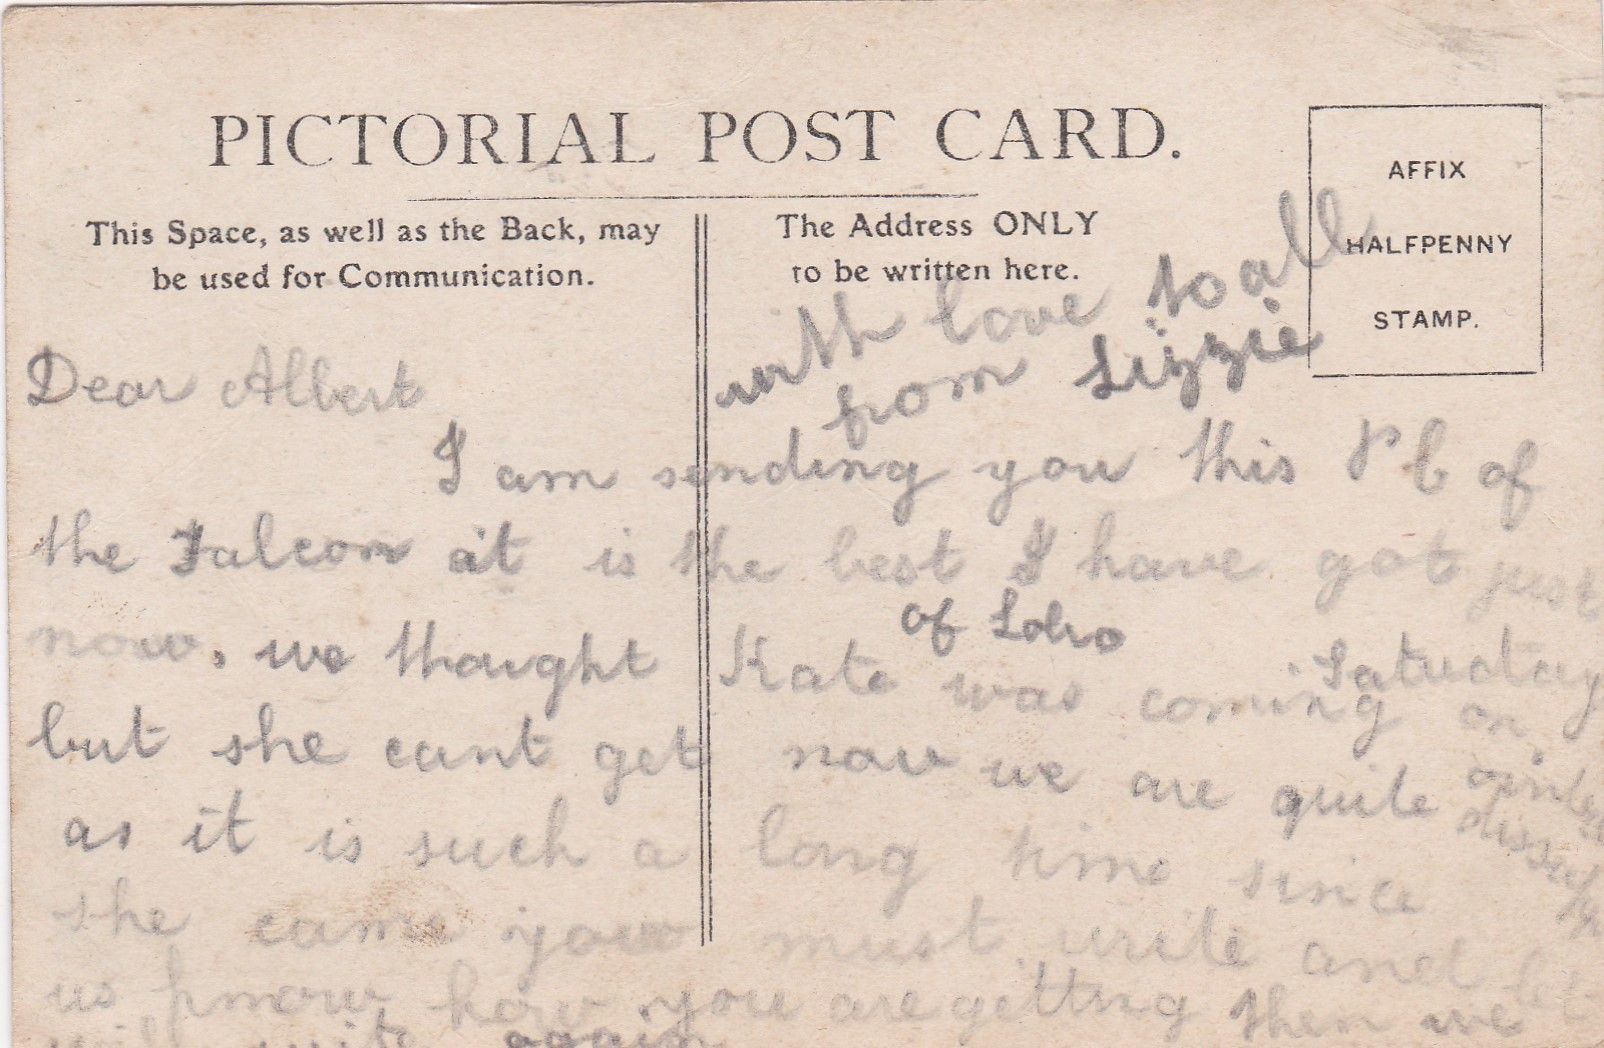 PICTORIAL POST CARD.
This Space, as well as the Back, may
be used for Communication.
The Address ONLY
to be written here.
AFFIX
HALFPENNY
STAMP.
with love to all
from Lizzie
Dear Albert
I am sending you this P C of
the Falcon it is the best I have got just
now. we thought Kate was coming on Saturday
but she cant get now we are quite
as it is such a long time since
she came you must write and let
us know how you are getting then we
will write again